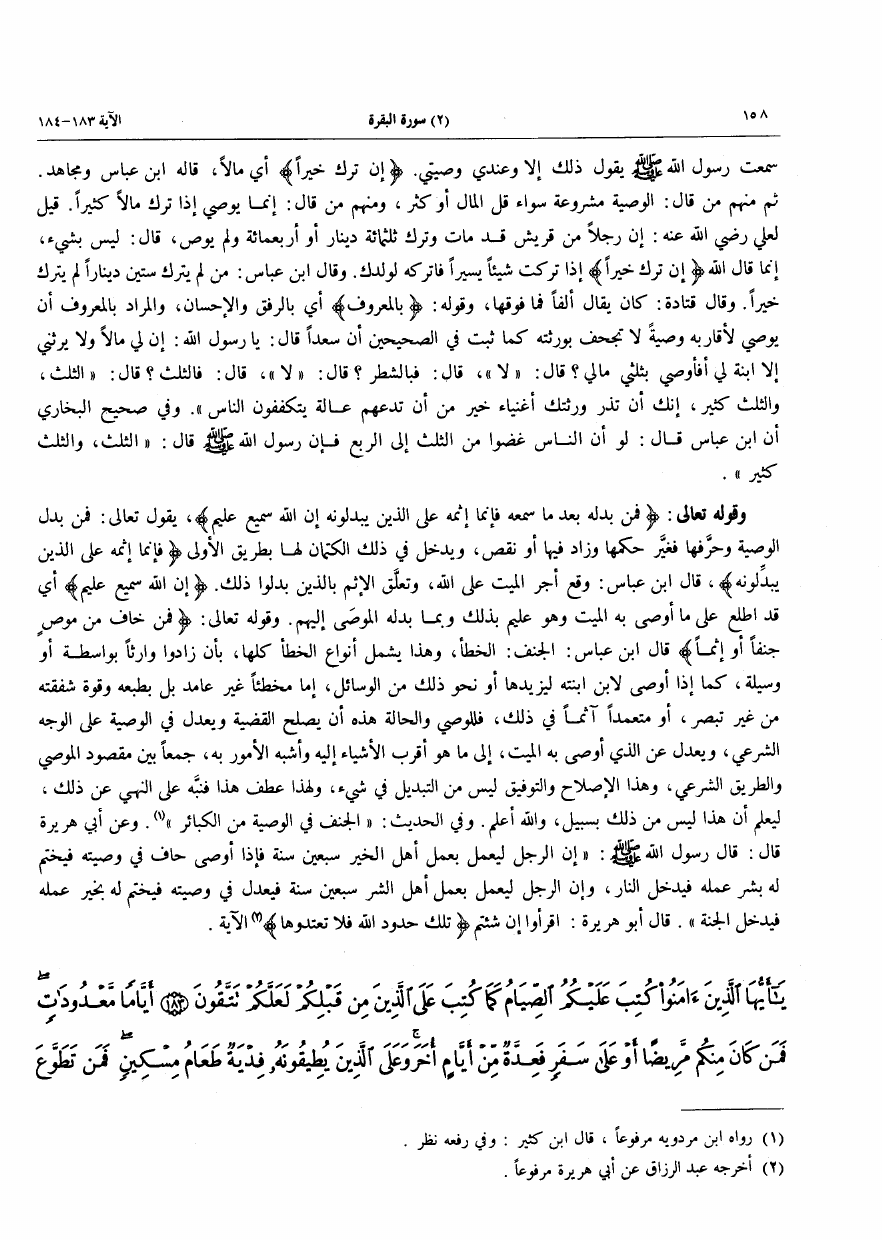 ١٥٨
(٢) سورة البقرة
الآية ١٨٣-١٨٤
سمعت رسول الله ﷺ يقول ذلك إلا وعندي وصيتي. ﴿إن ترك خيراً﴾ أي مالاً، قاله ابن عباس ومجاهد.
ثم منهم من قال: الوصية مشروعة سواء قل المال أو كثر ، ومنهم من قال: إنما يوصي إذا ترك مالاً كثيراً. قيل
لعلي رضي الله عنه: إن رجلاً من قريش قد مات وترك ثلثمائة دينار أو أربعمائة ولم يوص، قال: ليس بشيء،
إنما قال الله ﴿إن ترك خيراً﴾ إذا تركت شيئاً يسيراً فاتركه لولدك. وقال ابن عباس: من لم يترك ستين ديناراً لم يترك
خيراً. وقال قتادة: كان يقال ألفاً فما فوقها، وقوله: ﴿بالمعروف﴾ أي بالرفق والإحسان، والمراد بالمعروف أن
يوصي لأقاربه وصيةً لا تجحف بورثته كما ثبت في الصحيحين أن سعداً قال: يا رسول الله: إن لي مالاً ولا يرثني
إلا ابنة لي أفأوصي بثلثي مالي؟ قال: «لا»، قال: فبالشطر؟ قال: «لا»، قال: فالثلث؟ قال: «الثلث،
والثلث كثير، إنك أن تذر ورثتك أغنياء خير من أن تدعهم عالة يتكففون الناس». وفي صحيح البخاري
أن ابن عباس قال: لو أن الناس غضوا من الثلث إلى الربع فإن رسول الله ﷺ قال: «الثلث، والثلث
كثير».
وقوله تعالى: ﴿فمن بدله بعد ما سمعه فإنما إثمه على الذين يبدلونه إن الله سميع عليم﴾، يقول تعالى: فمن بدل
الوصية وحرَّفها فغيَّر حكمها وزاد فيها أو نقص، ويدخل في ذلك الكتمان لها بطريق الأولى ﴿فإنما إثمه على الذين
يبدِّلونه﴾، قال ابن عباس: وقع أجر الميت على الله، وتعلَّق الإثم بالذين بدلوا ذلك. ﴿إن الله سميع عليم﴾ أي
قد اطلع على ما أوصى به الميت وهو عليم بذلك وبما بدله الموصَى إليهم. وقوله تعالى: ﴿فمن خاف من موصٍ
جنفاً أو إثماً﴾ قال ابن عباس: الجنف: الخطأ، وهذا يشمل أنواع الخطأ كلها، بأن زادوا وارثاً بواسطة أو
وسيلة، كما إذا أوصى لابن ابنته ليزيدها أو نحو ذلك من الوسائل، إما مخطئاً غير عامد بل بطبعه وقوة شفقته
من غير تبصر، أو متعمداً آثماً في ذلك، فللوصي والحالة هذه أن يصلح القضية ويعدل في الوصية على الوجه
الشرعي، ويعدل عن الذي أوصى به الميت، إلى ما هو أقرب الأشياء إليه وأشبه الأمور به، جمعاً بين مقصود الموصي
والطريق الشرعي، وهذا الإصلاح والتوفيق ليس من التبديل في شيء، ولهذا عطف هذا فنبَّه على النهي عن ذلك،
ليعلم أن هذا ليس من ذلك بسبيل، والله أعلم. وفي الحديث: «الجنف في الوصية من الكبائر»(١). وعن أبي هريرة
قال: قال رسول الله ﷺ: «إن الرجل ليعمل بعمل أهل الخير سبعين سنة فإذا أوصى حاف في وصيته فيختم
له بشر عمله فيدخل النار، وإن الرجل ليعمل بعمل أهل الشر سبعين سنة فيعدل في وصيته فيختم له بخير عمله
فيدخل الجنة». قال أبو هريرة: اقرأوا إن شئتم ﴿تلك حدود الله فلا تعتدوها﴾(٢) الآية.
يَٰٓأَيُّهَا ٱلَّذِينَ ءَامَنُوا۟ كُتِبَ عَلَيْكُمُ ٱلصِّيَامُ كَمَا كُتِبَ عَلَى ٱلَّذِينَ مِن قَبْلِكُمْ لَعَلَّكُمْ تَتَّقُونَ ١٨٣ أَيَّامًا مَّعْدُودَٰتٍ
فَمَن كَانَ مِنكُم مَّرِيضًا أَوْ عَلَىٰ سَفَرٍ فَعِدَّةٌ مِّنْ أَيَّامٍ أُخَرَ وَعَلَى ٱلَّذِينَ يُطِيقُونَهُۥ فِدْيَةٌ طَعَامُ مِسْكِينٍ فَمَن تَطَوَّعَ
(١) رواه ابن مردويه مرفوعاً، قال ابن كثير: وفي رفعه نظر.
(٢) أخرجه عبد الرزاق عن أبي هريرة مرفوعاً.